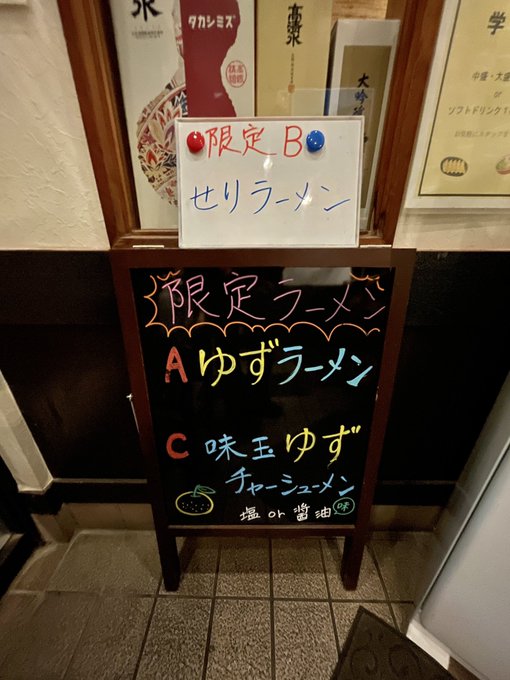 タカシミズ
高清水
大吟
学
中盛・大盛
or
限定B
せりラーメン
限定ラーメン
A ゆずラーメン
C 味玉ゆず
チャーシューメン
塩 or 醤油 味